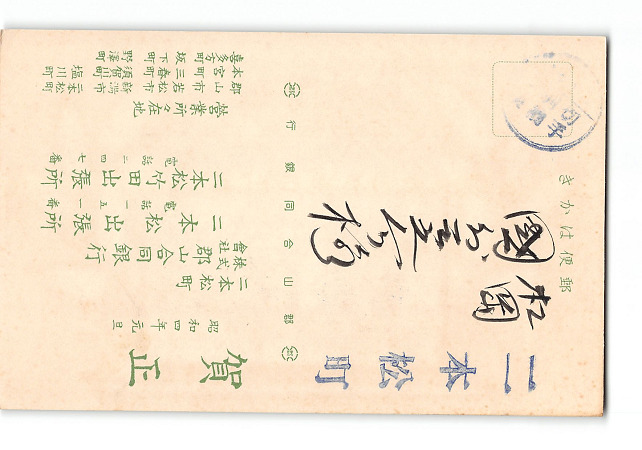 郵便はかき
二本松町
松岡
郡山合同銀行
賀正
昭和四年元旦
二本松町
株式會社 郡山合同銀行
二本松出張所
電話一五番
二本松竹田出張所
電話二四七番
營業所々在地
郡山市 若松市 新潟市 二本松町
本宮町 三春町 須賀川町 塩川町
喜多方町 坂下町 野澤町